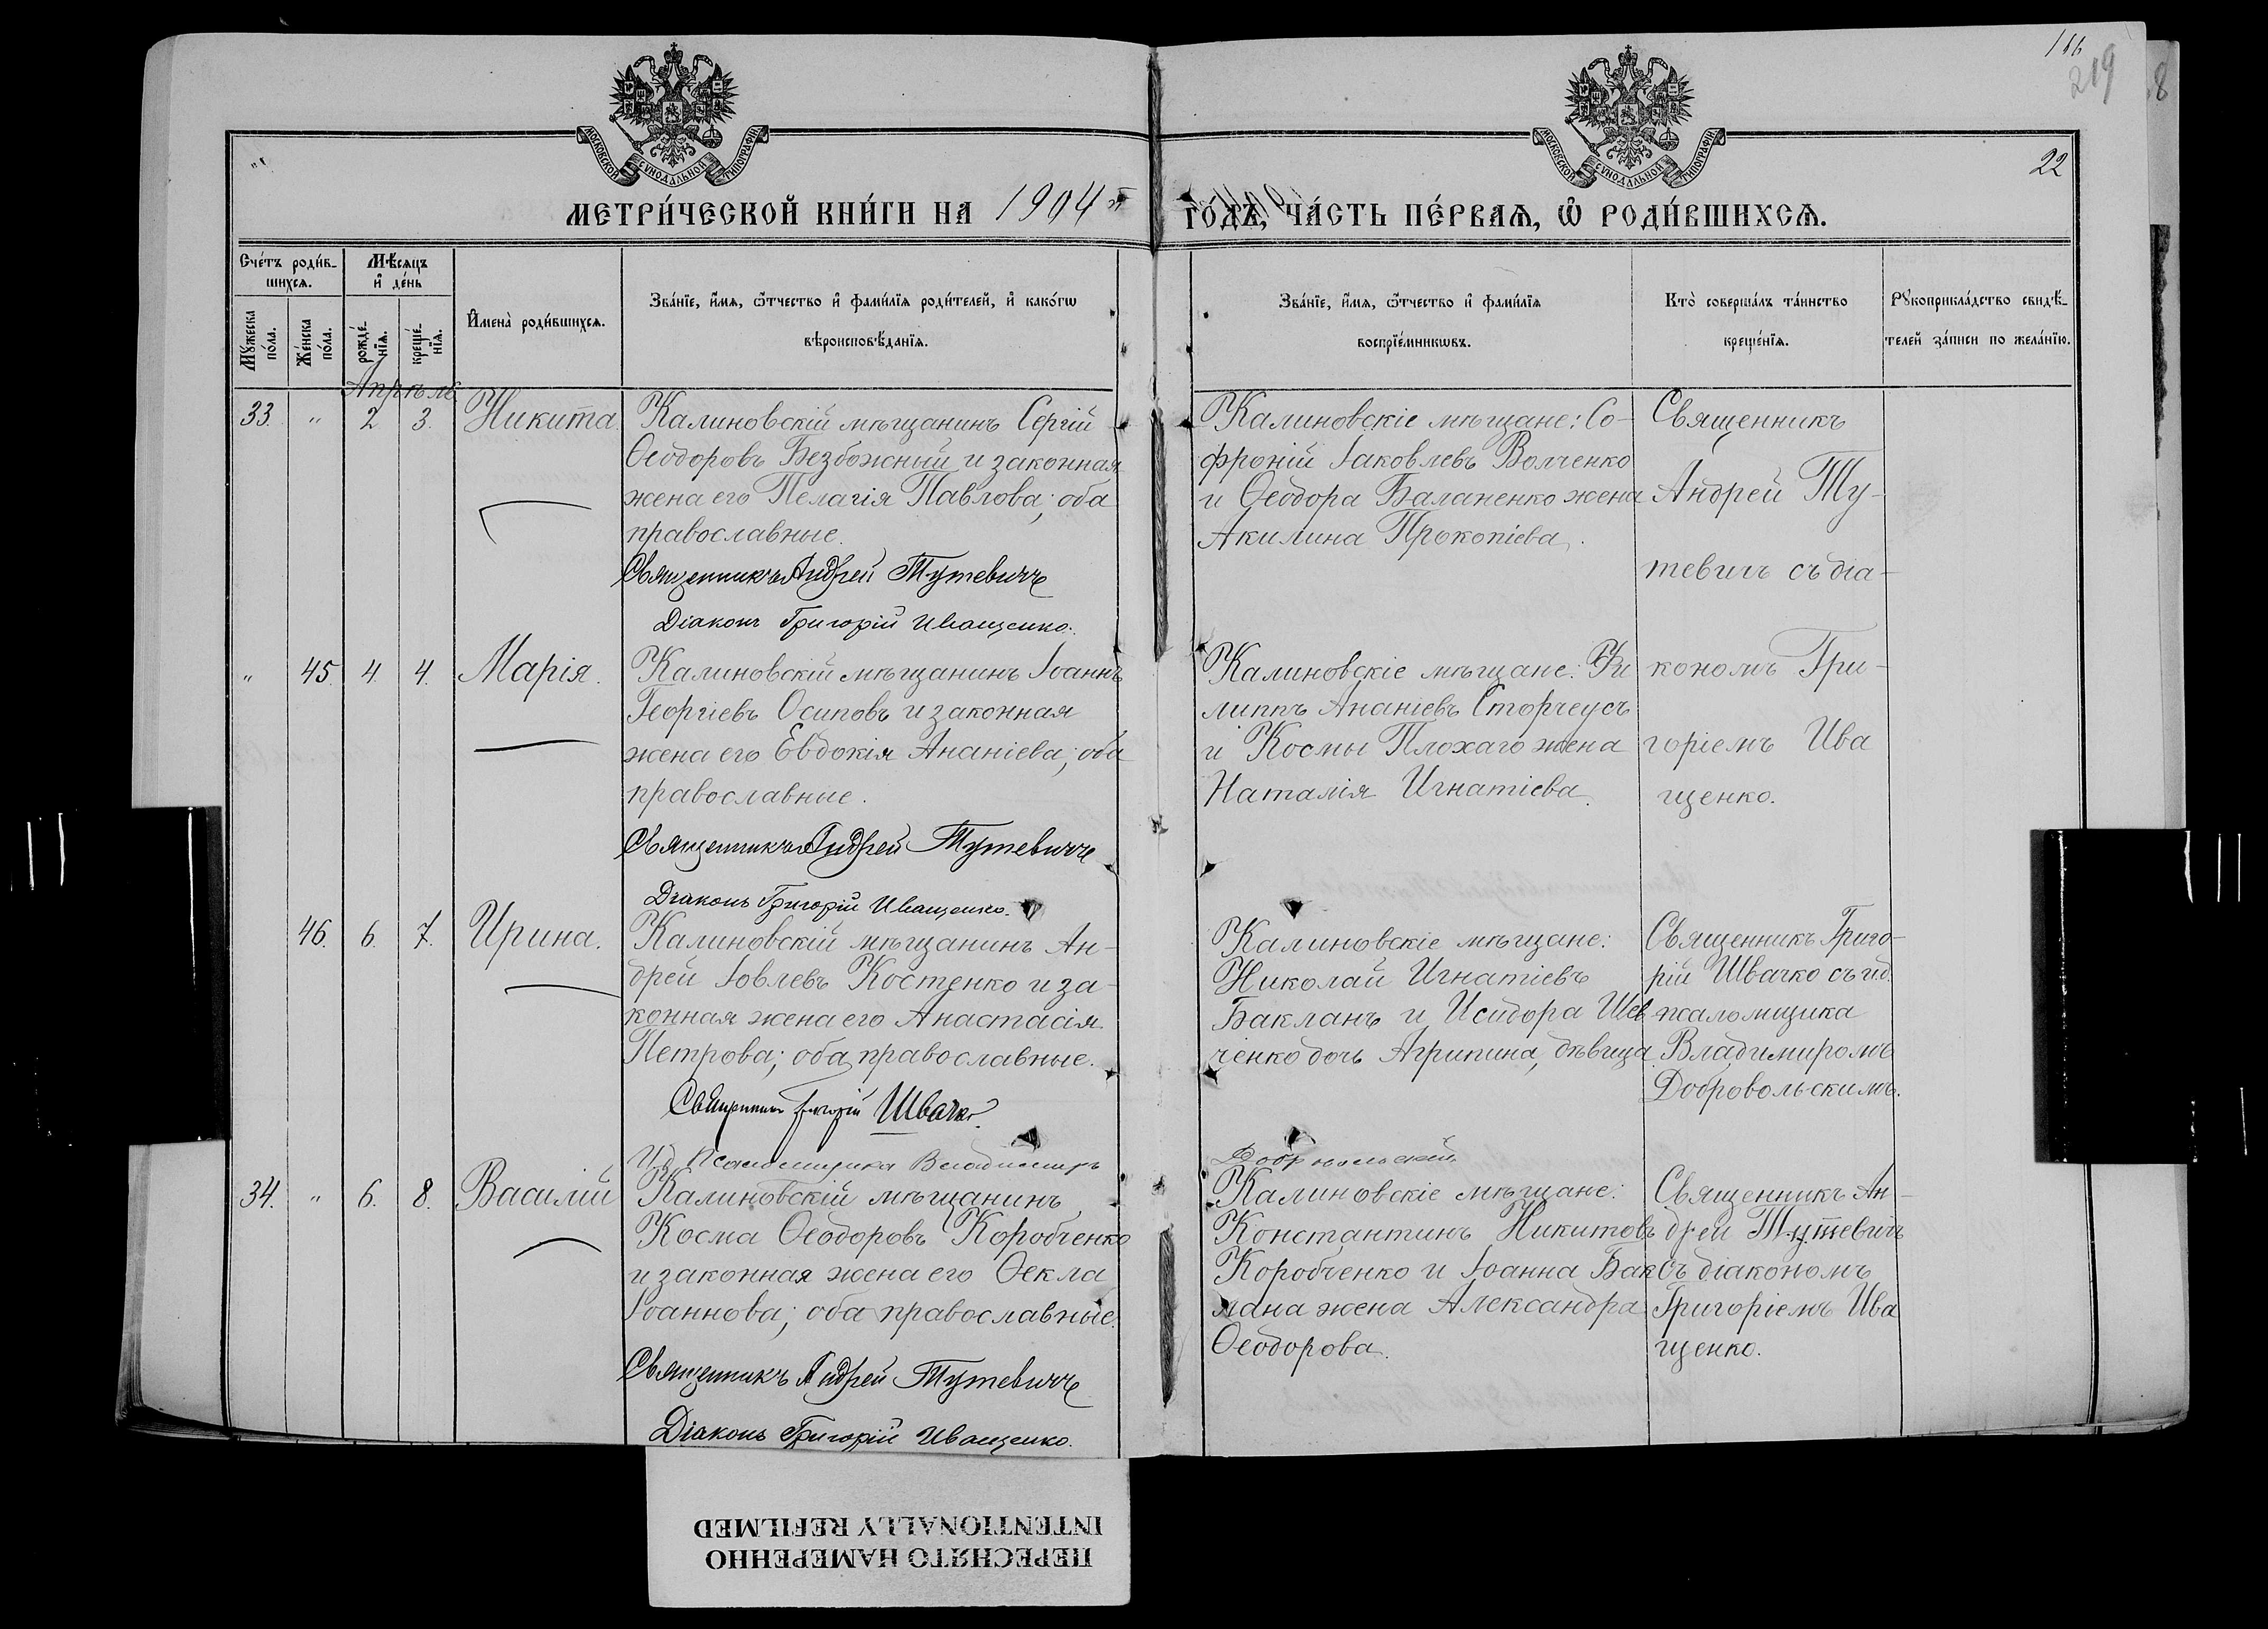 116
219
8
22
МОСКОВСКОЙ СѴНОДАЛЬНОЙ ТИПОГРАФІИ
МОСКОВСКОЙ СѴНОДАЛЬНОЙ ТИПОГРАФІИ
МЕТРИ́ЧЕСКОЙ КНИ́ГИ НА 1904 й
ГО́ДЪ, ЧА́СТЬ ПЕ́РВАѦ, Ѽ РОДИ́ВШИХСѦ.
Сче́тъ роди́в-
шихсѧ.
Мѣ́сѧцъ
и҆ де́нь
Мꙋ́жеска
по́ла.
Же́нска
по́ла.
рожде́-
нїѧ.
креще́-
нїѧ.
И҆мена̀ роди́вшихсѧ.
Зва́нїе, и҆́мѧ, ѻ҆́тчество и҆ фами́лїѧ роди́телей, и҆ како́гѡ
вѣроисповѣ́данїѧ.
Зва́нїе, и҆́мѧ, ѻ҆́тчество и҆ фами́лїѧ
воспрїе́мникѡвъ.
Кто̀ соверша́лъ та́инство
креще́нїѧ.
Рꙋкоприкла́дство свидѣ́-
телей за́писи по жела́нїю.
Апрѣль
33. " 2 3. Никита.
Калиновскій мѣщанинъ Сергій
Ѳеодоровъ Безбожный и законная
жена его Пелагія Павлова; оба
православные.
Священникъ Андрей Тутевичъ
Діаконъ Григорій Иващенко.
Калиновскіе мѣщане: Со-
фроній Іаковлевъ Волченко
и Ѳеодора Баланенко жена
Акилина Прокопіева.
Священникъ
Андрей Ту-
тевичъ съ діа-
" 45. 4. 4. Марія.
Калиновскій мѣщанинъ Іоаннъ
Георгіевъ Осиповъ и законная
жена его Евдокія Ананіева; оба
православные.
Священникъ Андрей Тутевичъ
Діаконъ Григорій Иващенко.
Калиновскіе мѣщане: Фи
липпъ Ананіевъ Сторчеусъ
и Космы Плохаго жена
Наталія Игнатіева.
кономъ Гри-
горіемъ Ива
щенко.
46. 6. 7. Ирина.
Калиновскій мѣщанинъ Ан-
дрей Іовлевъ Костенко и за-
конная жена его Анастасія
Петрова; оба православные.
Священникъ Григорій Швачко.
И. д. Псаломщика Владимиръ
Калиновскіе мѣщане:
Николай Игнатіевъ
Бакланъ и Исидора Шев
ченко дочь Агрипина, дѣвица
Добровольскій
Священникъ Григо-
рій Швачко съ и.д.
псаломщика
Владимиромъ
Добровольскимъ.
34. " 6. 8. Василій
Калиновскій мѣщанинъ
Косма Ѳеодоровъ Коробченко
и законная жена его Ѳекла
Іоаннова; оба православные.
Священникъ Андрей Тутевичъ
Діаконъ Григорій Иващенко.
Калиновскіе мѣщане:
Константинъ Никитовъ
Коробченко и Іоанна Бак
лана жена Александра
Ѳеодорова.
Священникъ Ан-
дрей Тутевичъ
съ діакономъ
Григоріемъ Ива
щенко.
ПЕРЕСНЯТО НАМЕРЕННО
INTENTIONALLY REFILMED